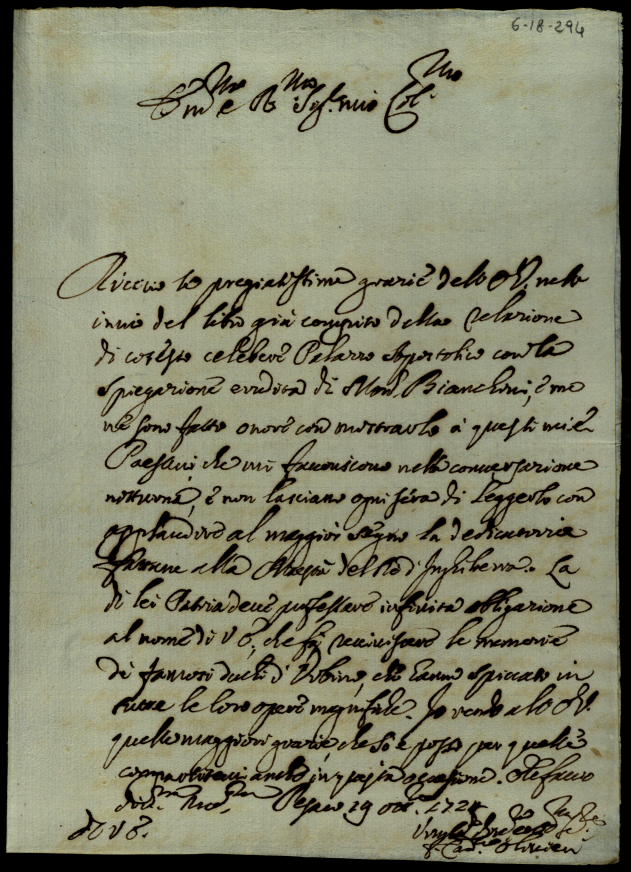 6-18-294
Em.mo e R.mo Sig. mio Col.mo
Ricevo le pregiatissime grazie dell' E.V. nell'
invio del libro già compito della relazione
di cotesto celebre Palazzo Apostolico con la
spiegazione erudita di Mons. Bianchini, e me
ne sono fatto onore con mostrarlo à questi miei
Paesani che mi favoriscono nella conversazione
notturna, e non lasciano ogni sera di leggerlo con
applaudire al maggior segno la dedicatoria
fattane alla Maestà del Rè d'Inghilterra. La
di lei Patria deve professare infinita obligazione
al nome di V.E., che fà le memorie
de famosi duchi d'Urbino, che hanno spiccato in
tutte le loro opere magnifiche. Io rendo all' E.V.
quelle maggiori grazie, che so e posso per quelle
anche in questa occasione. e le faccio
Pesaro 29 1724
di V.E.
Card. Olivieri